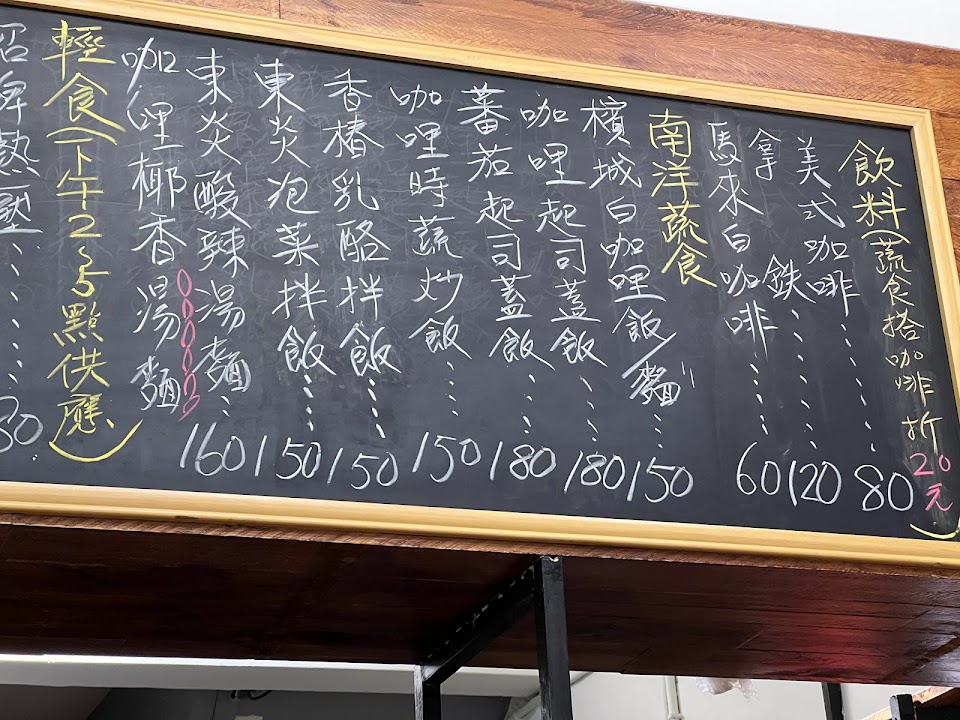 飲料(蔬食搭咖啡折20元)
美式咖啡……80
拿鉄……120
馬來白咖啡……60
南洋蔬食
檳城白咖哩飯/麵……150
咖哩起司蓋飯……180
蕃茄起司蓋飯……180
咖哩時蔬炒飯……150
香椿乳酪拌飯……150
東炎泡菜拌飯……150
東炎酸辣湯麵……160
咖哩椰香湯麵
輕食(下午2~5點供應)